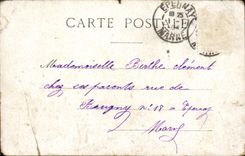 CARTE POSTALE
EPERNAY
MARNE
Mademoiselle Berthe Clément
chez ses parents rue de
n° 18 à Epernay
Marne